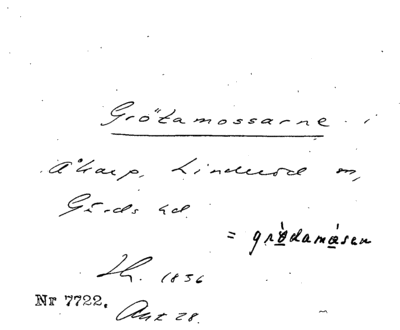 Grötamossarne i
Åkarp, Linderöd m,
Gärds hd.
= grödamåsen
Lh. 1836
Nr 7722. Akt 28.